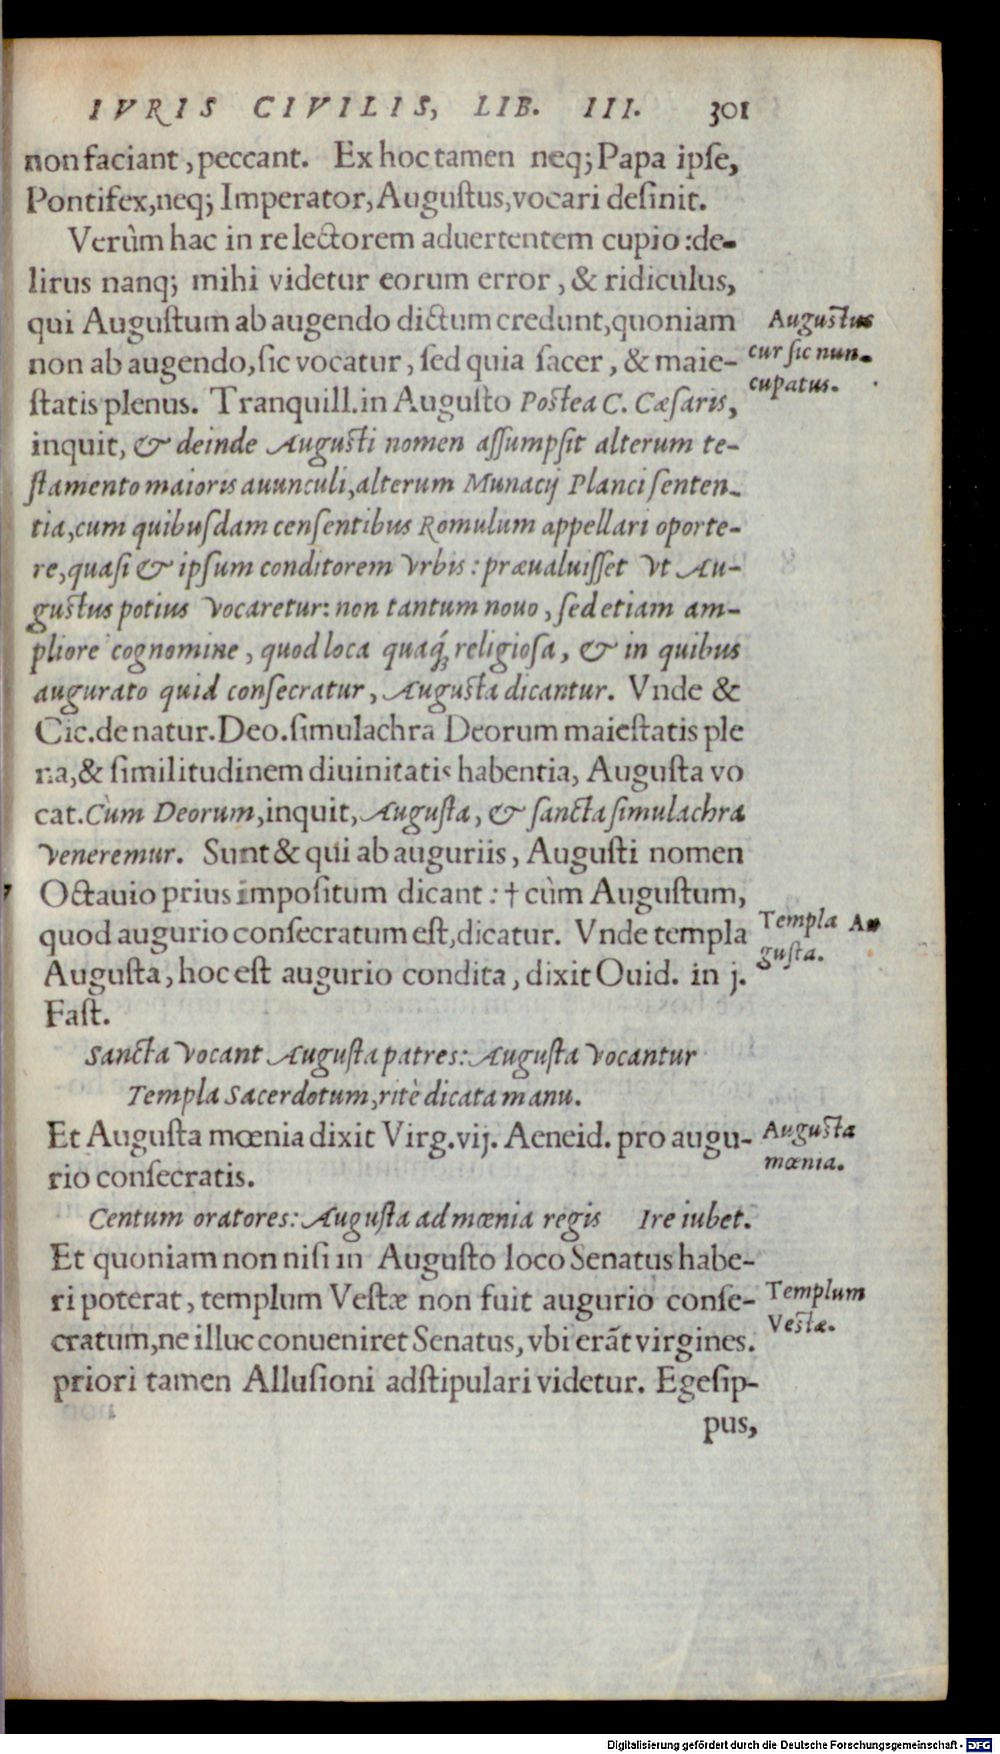 IVRIS CIVILIS, LIB. III. 301
non faciant, peccant. Ex hoc tamen neq; Papa ipſe,
Pontifex, neq; Imperator, Auguſtus, vocari deſinit.
Verùm hac in re lectorem aduertentem cupio: de-
lirus nanq; mihi videtur eorum error, & ridiculus,
qui Auguſtum ab augendo dictum credunt, quoniam
Auguſtus
non ab augendo, ſic vocatur, ſed quia ſacer, & maie-
cur ſic nun-
ſtatis plenus. Tranquill. in Auguſto Poſtea C. Cæſaris,
cupatus.
inquit, & deinde Auguſti nomen aſſumpſit alterum te-
ſtamento maioris auunculi, alterum Munacij Planci ſenten-
tia, cum quibuſdam cenſentibus Romulum appellari oporte-
re, quaſi & ipſum conditorem vrbis: præualuiſſet vt Au-
guſtus potius vocaretur: non tantum nouo, ſed etiam am-
pliore cognomine, quod loca quaq́; religioſa, & in quibus
augurato quid conſecratur, Auguſta dicantur. Vnde &
Cic. de natur. Deo. ſimulachra Deorum maieſtatis ple
na, & ſimilitudinem diuinitatis habentia, Auguſta vo
cat. Cùm Deorum, inquit, Auguſta, & ſancta ſimulachra
veneremur. Sunt & qui ab auguriis, Auguſti nomen
Octauio prius impoſitum dicant: † cùm Auguſtum,
quod augurio conſecratum eſt, dicatur. Vnde templa
Templa Au
Auguſta, hoc eſt augurio condita, dixit Ouid. in j.
guſta.
Faſt.
Sancta vocant Auguſta patres: Auguſta vocantur
Templa Sacerdotum, ritè dicata manu.
Et Auguſta mœnia dixit Virg. vij. Aeneid. pro augu-
Auguſta
rio conſecratis.
mœnia.
Centum oratores: Auguſta ad mœnia regis Ire iubet.
Et quoniam non niſi in Auguſto loco Senatus habe-
ri poterat, templum Veſtæ non fuit augurio conſe-
Templum
cratum, ne illuc conueniret Senatus, vbi erãt virgines.
Veſtæ.
priori tamen Alluſioni adſtipulari videtur. Egeſip-
pus,
Digitalisierung gefördert durch die Deutsche Forschungsgemeinschaft - DFG